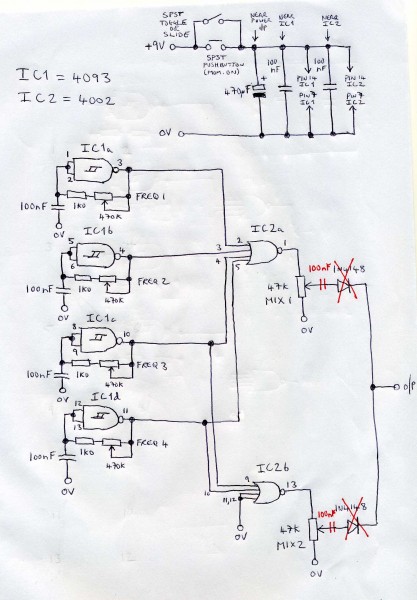 SPST
TOGGLE
OR
SLIDE
+9V
SPST
PUSHBUTTON
(MOM. ON)
NEAR
POWER
I/P
NEAR
IC1
NEAR
IC2
+
470µF
100
nF
PIN 14
IC1
PIN 7
IC1
100
nF
PIN 14
IC2
PIN 7
IC2
0V
IC1 = 4093
IC2 = 4002
IC1a
1
2
3
1K0
470K
FREQ 1
100nF
0V
IC1b
5
6
4
1K0
470K
FREQ 2
100nF
0V
IC1c
8
9
10
1K0
470K
FREQ 3
100nF
0V
IC1d
12
13
11
1K0
470K
FREQ 4
100nF
0V
IC2a
2
3
4
5
1
47K
MIX 1
100nF
1N4148
0V
O/P
IC2b
9
10
11,12
13
0V
47K
MIX 2
100nF
1N4148
0V